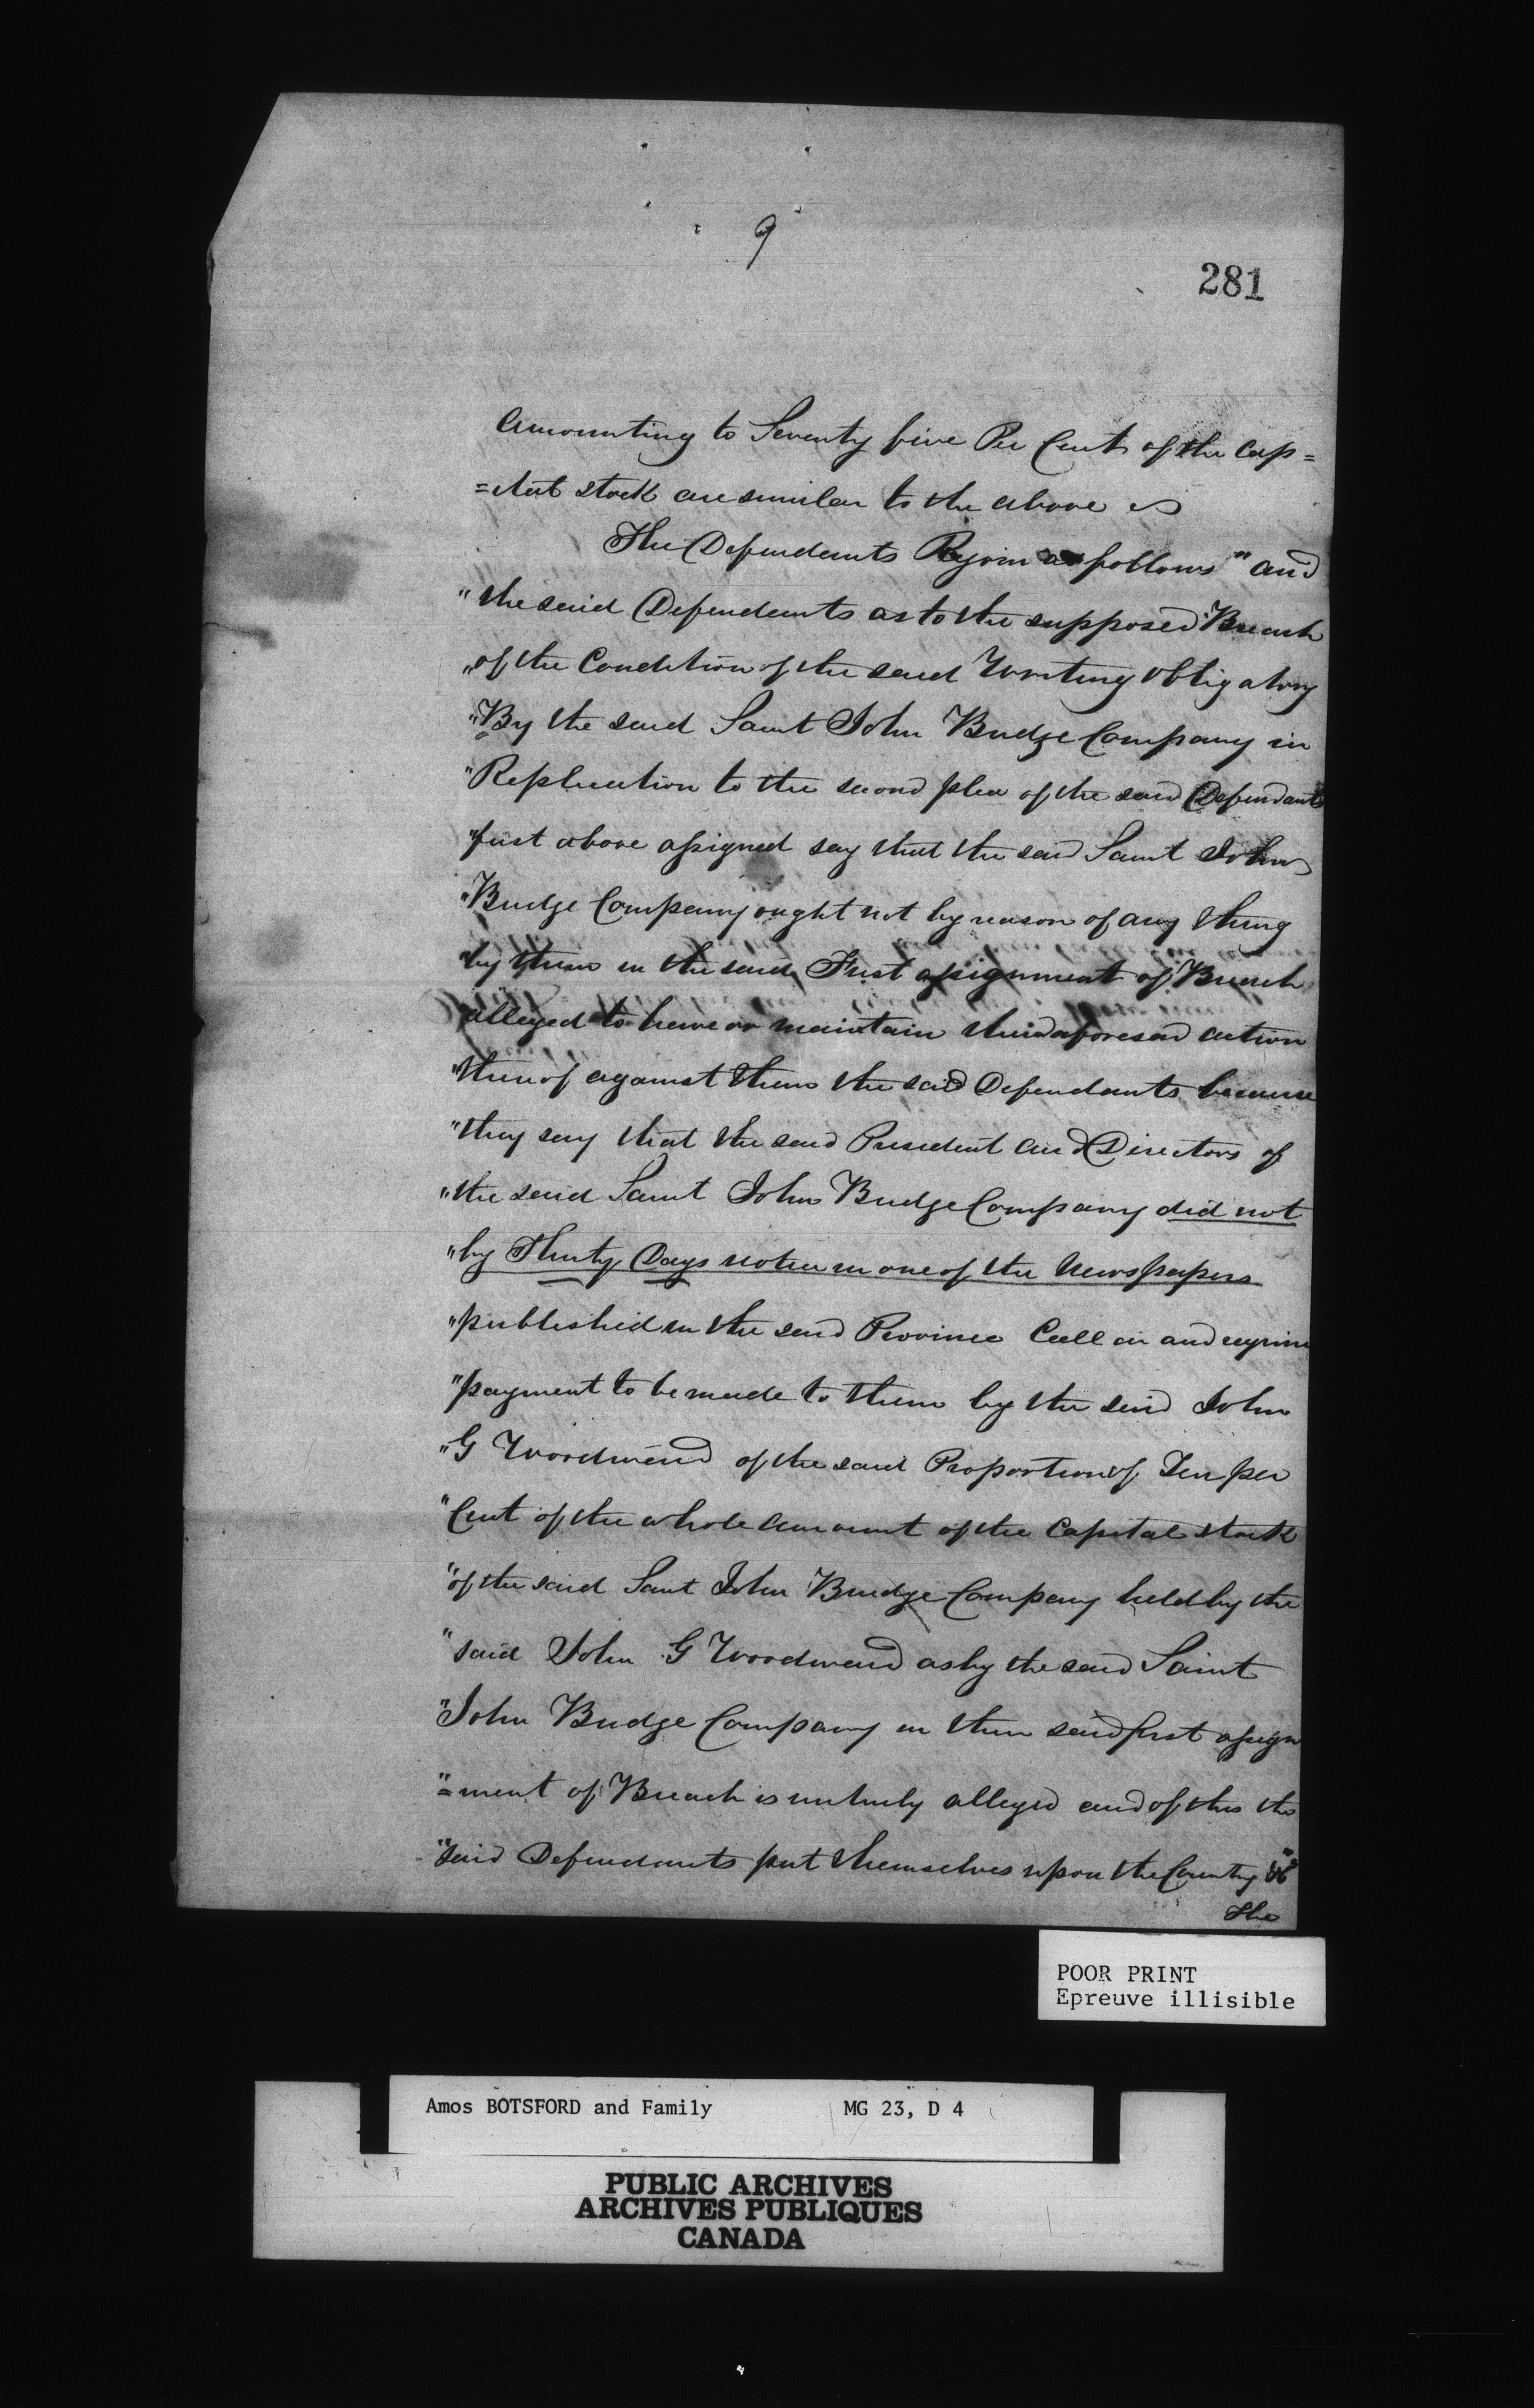 9
281
Amounting to Seventy five Per Cent of the Cap=
=ital stock are similar to the above
The Defendants Rejoin as follows "and
"the said Defendants as to the supposed Breach
"of the Condition of the said Writing obligatory
"By the said Saint John Bridge Company in
"Replication to the second plea of the said Defendants
"first above assigned say that the said Saint John
"Bridge Company ought not by reason of any thing
"by them in the said First assignment of Breach
"alleged to have or maintain their aforesaid action
"thereof against them the said Defendants because
"they say that the said President and Directors of
"the said Saint John Bridge Company did not
"by Thirty Days notice in one of the Newspapers
"published in the said Province Call in and require
"payment to be made to them by the said John
"G Woodward of the said Proportion of Ten per
"Cent of the whole amount of the Capital stock
"of the said Saint John Bridge Company held by the
"said John G Woodward as by the said Saint
"John Bridge Company in their said first assign
"=ment of Breach is untruly alleged and of this the
"said Defendants put themselves upon the Country &c"
The
POOR PRINT
Epreuve illisible
Amos BOTSFORD and Family MG 23, D 4
PUBLIC ARCHIVES
ARCHIVES PUBLIQUES
CANADA